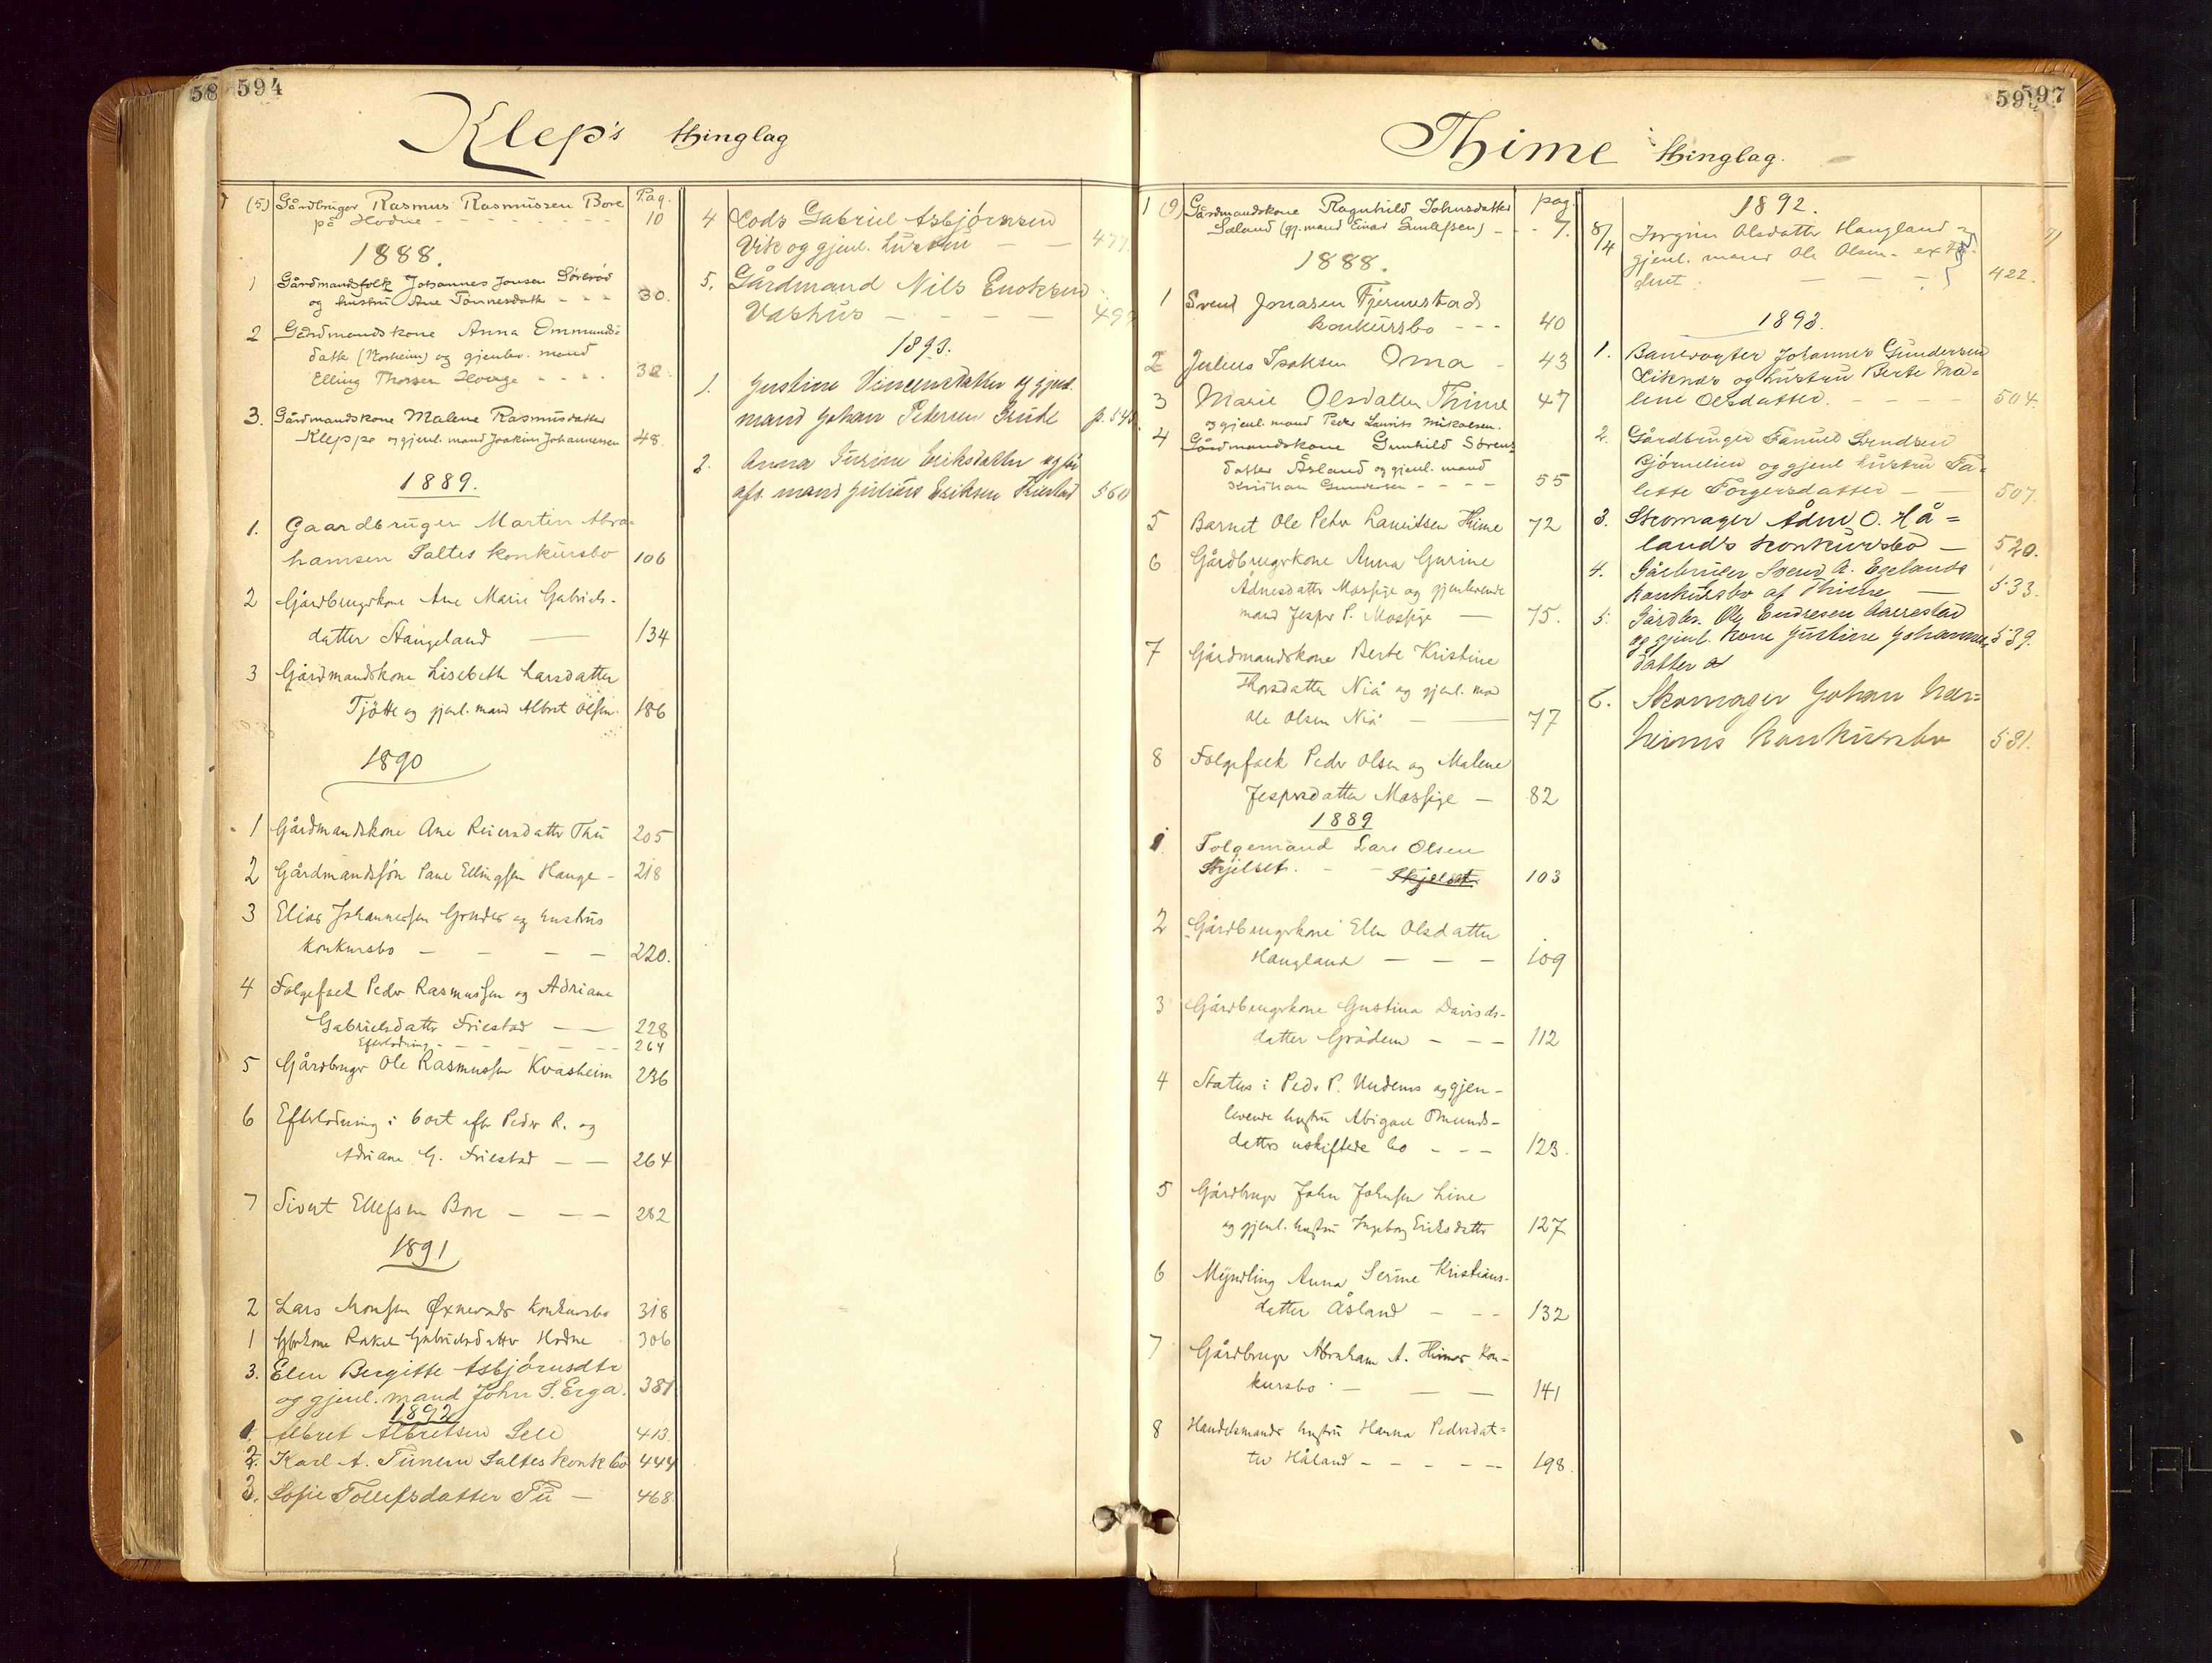 58 594
Klep's thinglag
Pag.
1 (5) Gårdbruger Rasmus Rasmussen Bore
på Hodne - - - - - - 10
1888.
1 Gårdmandsfolk Johannes Jonsen Sørbrød
og hustru Ane Tønnesdatt - - - 30.
2 Gårdmandskone Anna Ommunds-
datter (Norheim) og gjenlev. mand
Elling Thorsen Hauge - - - - 32
3. Gårdmandskone Malene Rasmusdatter
Kleppe og gjenl. mand Joakim Johannesen 48.
1889.
1. Gaardbruger Martin Abra-
hamsen Saltes konkursbo 106
2 Gårdbrugerkone Ane Marie Gabriels-
datter Stangeland — 134
3 Gårdmandskone Lisebeth Larsdatter
Tjøtte og gjenl. mand Albert Olsen. 186
1890
1 Gårdmandskone Ane Reiersdatter Thu 205
2 Gårdmandssøn Pane Ellingsen Hauge - 218
3 Elias Johannessen Gruder og hustrus
konkursbo - - - - 220.
4 Folgefolk Peder Rasmussen og Adriane
Gabrielsdatter Friestad — — 228
Efterlodning - - - - - - 264
5 Gårdbruger Ole Rasmussen Kvasheim 236
6 Efterlodning i boet efter Peder R. og
Adriane G. Friestad — — 264
7 Sivert Ellefsen Bore - - - 282
1891
2 Lars Monsen Øxnevads konkursbo 318
1 Gbrkone Rakel Gabrielsdatter Hodne 306
3. Elen Bergitte Asbjørnsdtr
og gjenl. mand John S. Erga. 381
1892
1. Albret Albretsen Sele 413.
2. Karl A. Tunem Saltes konkbo 444
3. Sofie Tollefsdatter Tu — 468.
4 Lods Gabriel Asbjørnsen
Vik og gjenl. hustru — — 477.
5. Gårdmand Nils Enoksen
Vashus — — — — 499
1893.
1. Justine Vincentsdatter og gjenl.
mand Johan Pedersen Grude p. 545
2. Anna Surine Eriksdatter og før
afd. mand Julius Eriksen Friestad 560
59 597
Thime thinglag.
pag.
1 (9) Gårdmandskone Ragnhild Johnsdatter
Saland (gj. mand Einar Gunlefsen) - - 7.
1888.
1 Svend Jonasen Fjermestads
konkursbo - - - 40
2 Julius Isaksen Oma - 43
3 Marie Olsdatter Thime 47
og gjenl. mand Peder Laurits Mikalsen.
4 Gårdmandskone Gunhild Sørens-
datter Åsland og gjenl. mand
Kristian Gundersen - - - - 55
5 Barnet Ole Peter Lauritsen Thime 72
6 Gårdbrugerkone Anna Gurine
Ådnesdatter Mossige og gjenlevende
mand Jesper P. Mossige — 75.
7 Gårdmandskone Berte Kristine
Thorsdatter Niå og gjenl. mand
Ole Olsen Niå — — 77
8 Folgefolk Peder Olsen og Malene
Jespersdatter Mossige — 82
1889
1 Folgemand Lars Olsen
Skjelset. - - Skjelset 103
2 Gårdbrugerkone Elen Olsdatter
Haugland — — — 109
3 Gårdbrugerkone Gustina Davids-
datter Grødem - - - 112
4 Status i Peder P. Undems og gjen-
levende hustru Abigael Omunds-
datters uskiftede bo - - - 123.
5 Gårdbruger John Johnsen Line
og gjenl. hustru Ingeborg Eriksdatter 127
6 Myndling Anna Serine Kristians-
datter Åsland - - - 132
7 Gårdbruger Abraham A. Thimes kon-
kursbo - — — 141
8 Handelsmands hustru Hanna Pedersdat-
ter Håland - - - - - 198.
1892.
8/4 Jorgine Olsdatter Haugland
gjenl. mand Ole Olsen
422.
1893.
1. Banevogter Johannes Gundersen
Liknes og hustru Berte Ma-
lene Olsdatter. - - - - 504.
2. Gårdbruger Samuel Svendsen
Bjørnelien og gjenl hustru Ta-
lette Torgersdatter — — 507.
3. Skomager Ådne O. Hå-
lands konkursbo — 520.
4. Gårbruger Svend A. Egelands
konkursbo af Thime — 533.
5. Gårdbr. Ole Endresen Aarrestad
og gjenl. kone Justine Johannes- 539.
datter
6. Skomager Johan Nær-
heims konkursbo 581.